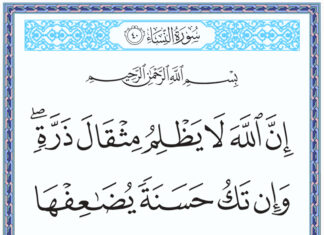 سُورَةُ النِّسَاءِ ٤٠
بِسْمِ ٱللَّهِ ٱلرَّحْمَٰنِ ٱلرَّحِيمِ
إِنَّ ٱللَّهَ لَا يَظْلِمُ مِثْقَالَ ذَرَّةٍۖ
وَإِن تَكُ حَسَنَةً يُضَٰعِفْهَا